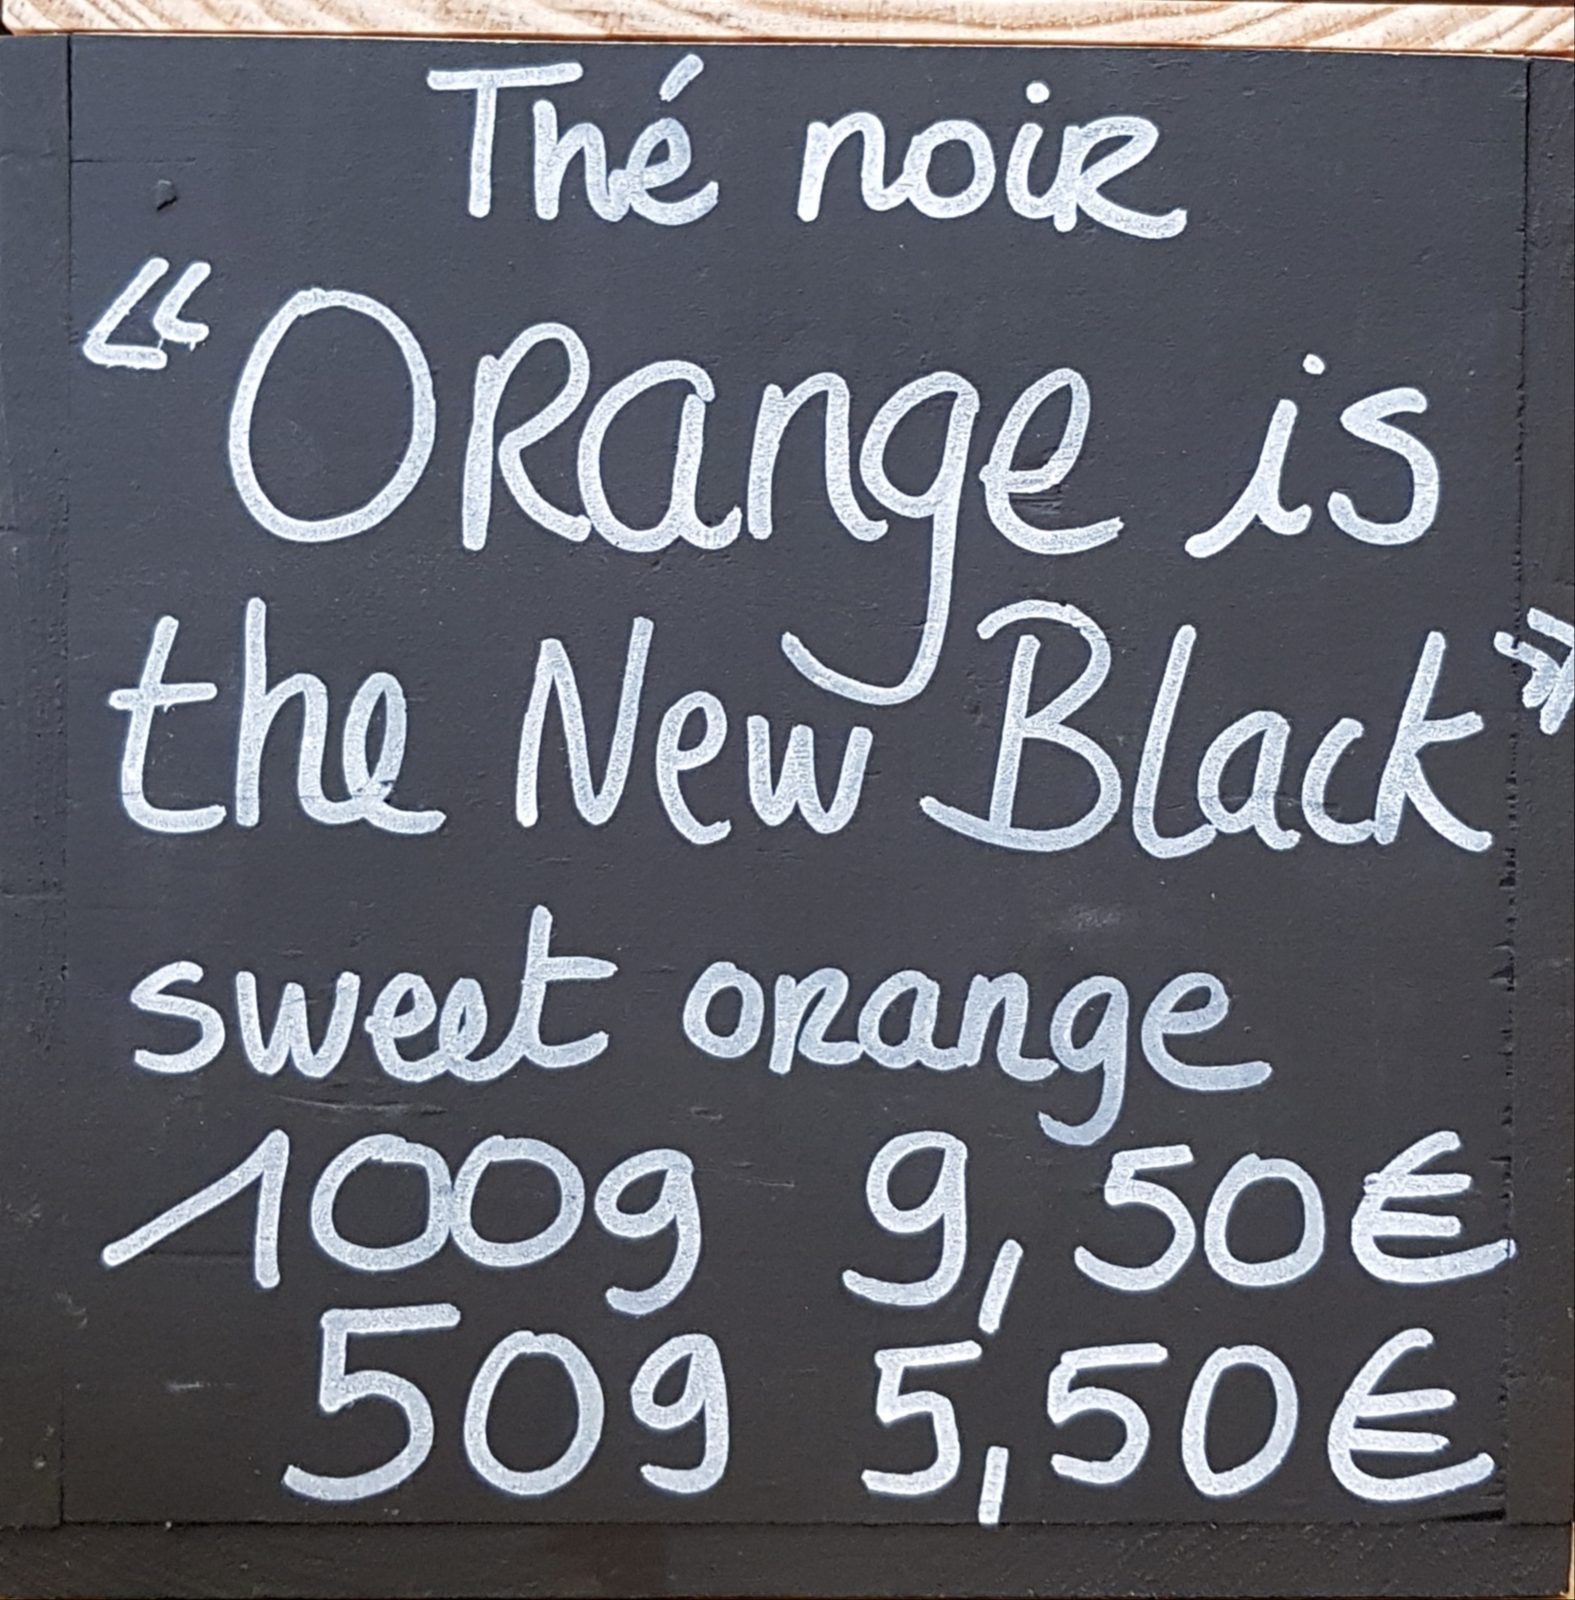 Thé noir
“Orange is
the New Black”
sweet orange
100g 9,50€
50g 5,50€